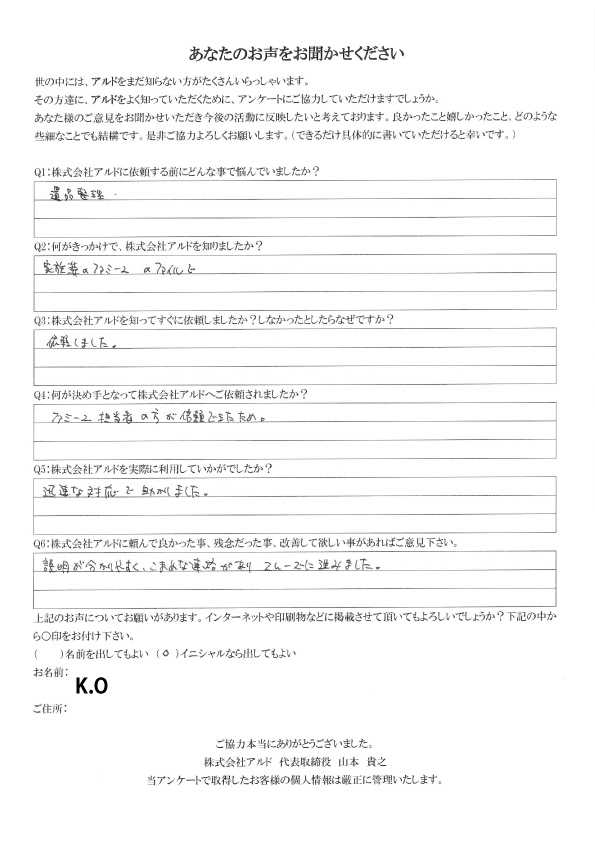 あなたのお声をお聞かせください
世の中には、アルドをまだ知らない方がたくさんいらっしゃいます。
その方達に、アルドをよく知っていただくために、アンケートにご協力していただけますでしょうか。
あなた様のご意見をお聞かせいただき今後の活動に反映したいと考えております。良かったこと嬉しかったこと、どのような
些細なことでも結構です。是非ご協力よろしくお願いします。(できるだけ具体的に書いていただけると幸いです。)
Q1:株式会社アルドに依頼する前にどんな事で悩んでいましたか?
遺品整理
Q2:何がきっかけで、株式会社アルドを知りましたか?
実施業のファミーユ のファイルで
Q3:株式会社アルドを知ってすぐに依頼しましたか?しなかったとしたらなぜですか?
依頼しました。
Q4:何が決め手となって株式会社アルドへご依頼されましたか?
ファミーユ 担当者の方が信頼できたため。
Q5:株式会社アルドを実際に利用していかがでしたか?
迅速な対応で助かりました。
Q6:株式会社アルドに頼んで良かった事、残念だった事、改善して欲しい事があればご意見下さい。
説明が分かりやすく、こまめな連絡があり スムーズに進みました。
上記のお声についてお願いがあります。インターネットや印刷物などに掲載させて頂いてもよろしいでしょうか?下記の中か
ら○印をお付け下さい。
( )名前を出してもよい (○)イニシャルなら出してもよい
お名前:
K.O
ご住所:
ご協力本当にありがとうございました。
株式会社アルド 代表取締役 山本 貴之
当アンケートで取得したお客様の個人情報は厳正に管理いたします。